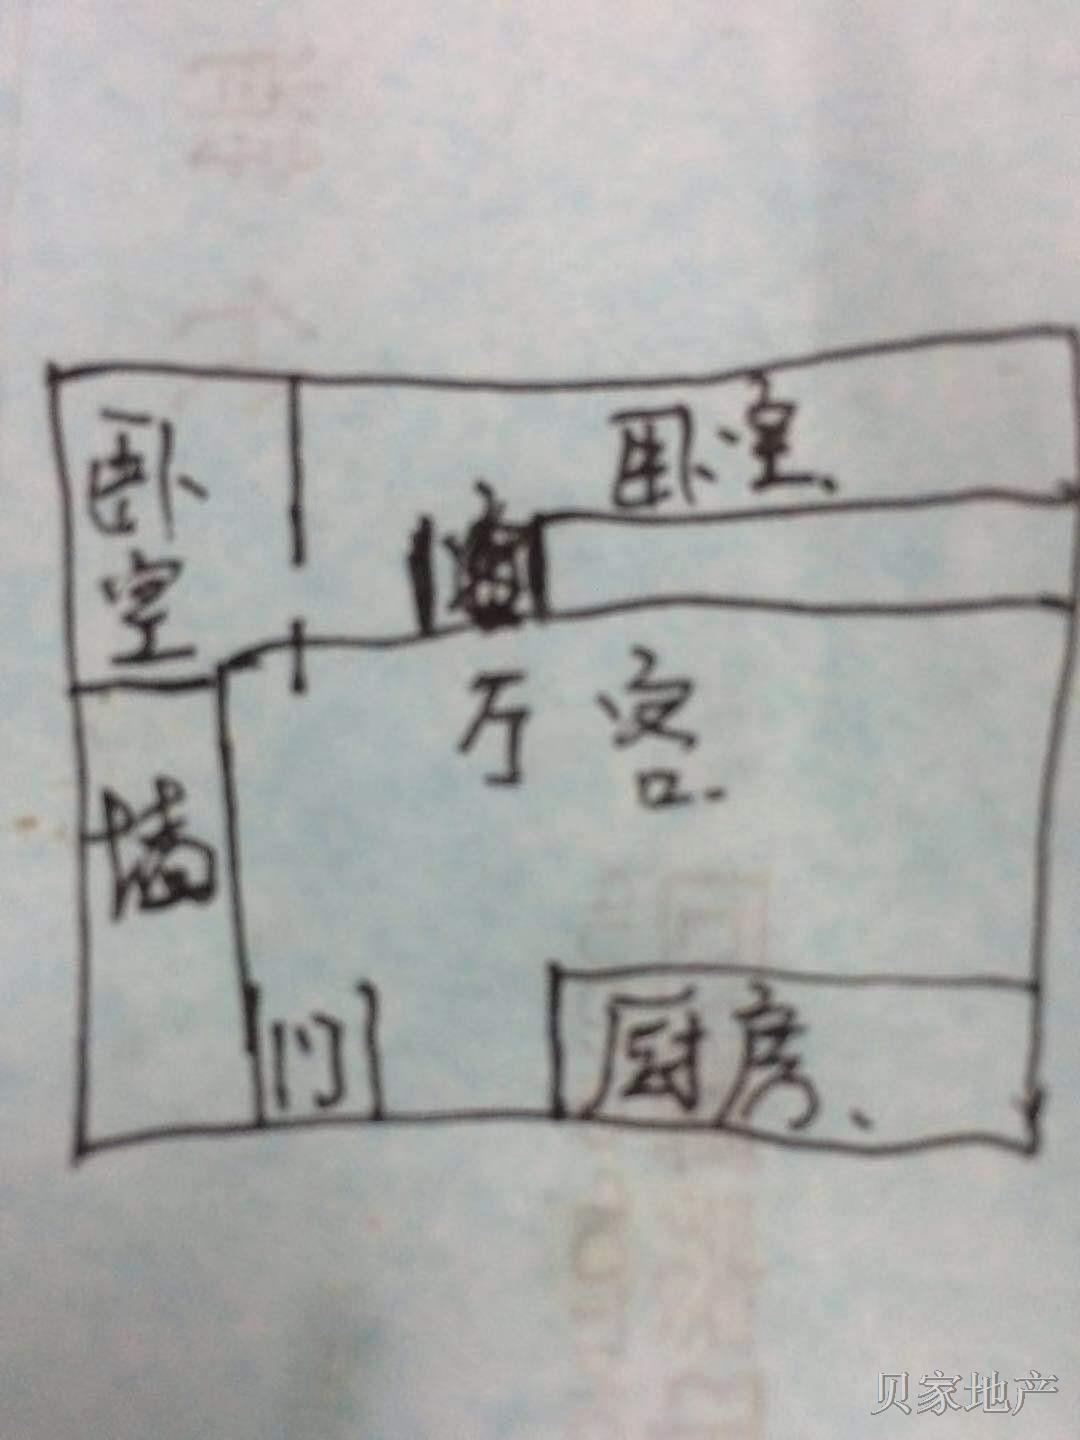 卧室
卧室.
厅客.
墙
门
厨房.
贝家地产